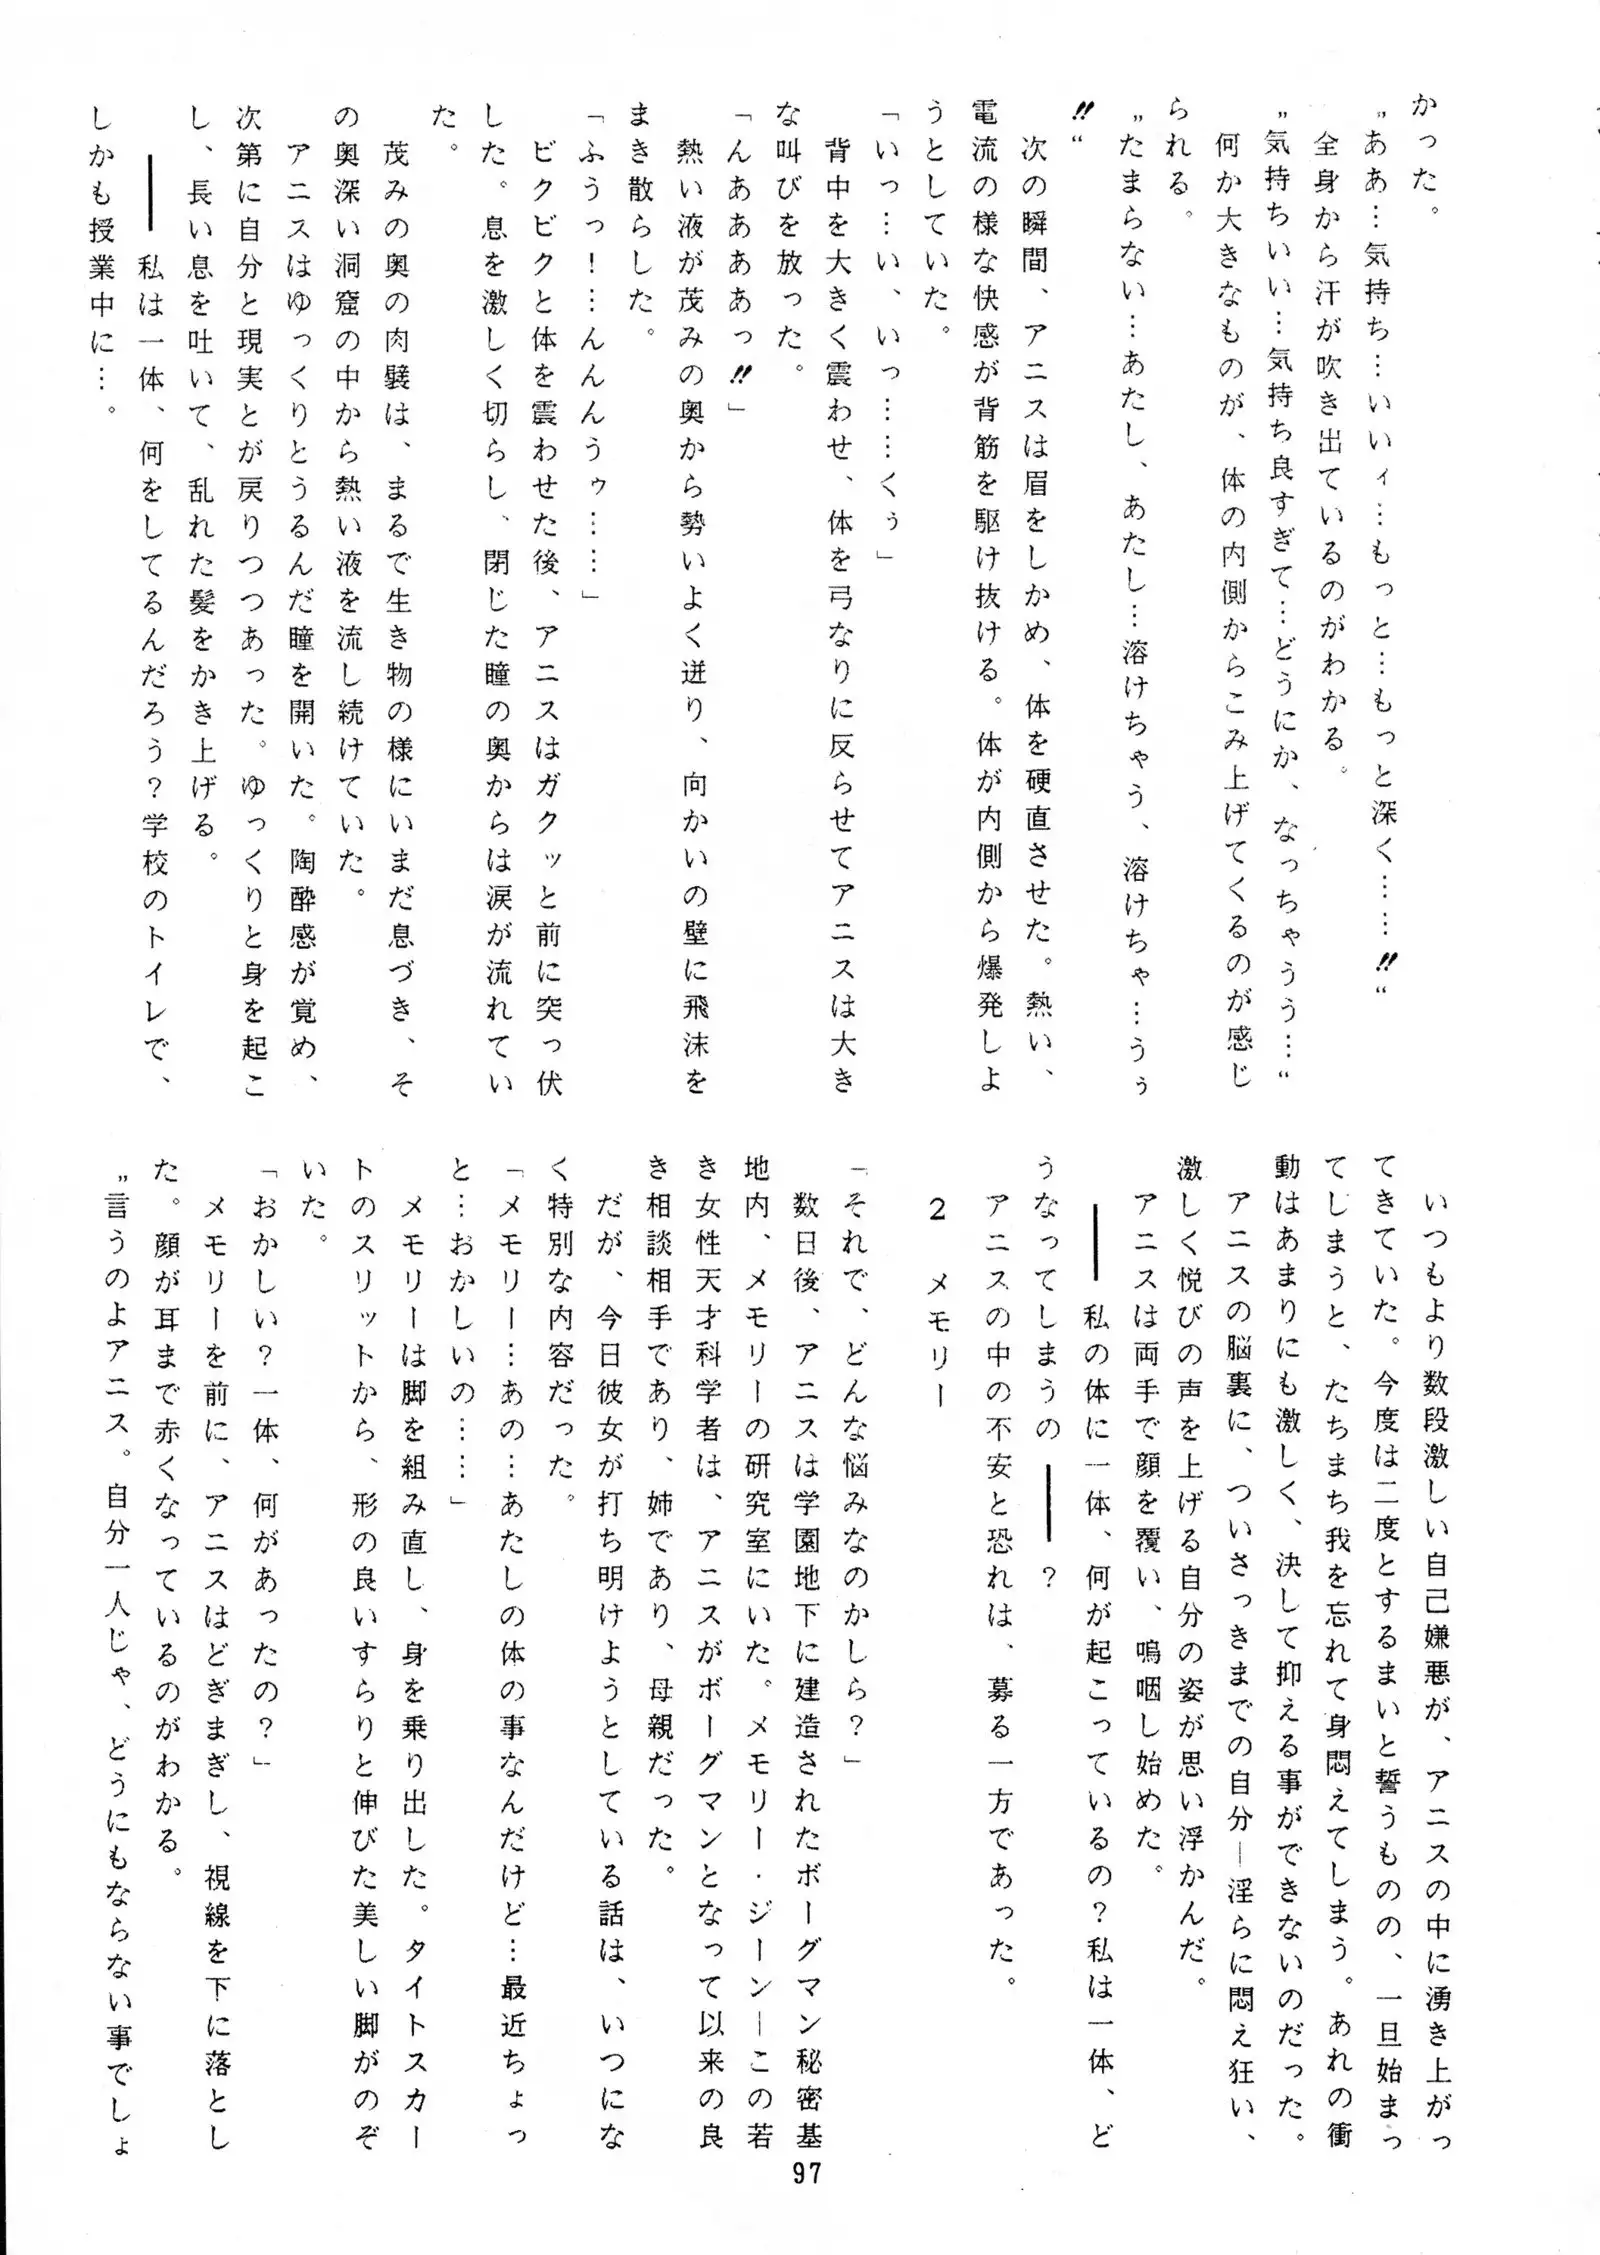 かった。
〝ああ…気持ち…いいィ…もっと…もっと深く……!!〟
全身から汗が吹き出ているのがわかる。
〝気持ちいい…気持ち良すぎて…どうにか、なっちゃうう…〟
何か大きなものが、体の内側からこみ上げてくるのが感じ
られる。
〝たまらない…あたし、あたし…溶けちゃう、溶けちゃ…うぅ
!!〟
次の瞬間、アニスは眉をしかめ、体を硬直させた。熱い、
電流の様な快感が背筋を駆け抜ける。体が内側から爆発しよ
うとしていた。
「いっ…い、いっ……くぅ」
背中を大きく震わせ、体を弓なりに反らせてアニスは大き
な叫びを放った。
「んあああっ!!」
熱い液が茂みの奥から勢いよく迸り、向かいの壁に飛沫を
まき散らした。
「ふうっ!…んんんうゥ……」
ビクビクと体を震わせた後、アニスはガクッと前に突っ伏
した。息を激しく切らし、閉じた瞳の奥からは涙が流れてい
た。
茂みの奥の肉襞は、まるで生き物の様にいまだ息づき、そ
の奥深い洞窟の中から熱い液を流し続けていた。
アニスはゆっくりとうるんだ瞳を開いた。陶酔感が覚め、
次第に自分と現実とが戻りつつあった。ゆっくりと身を起こ
し、長い息を吐いて、乱れた髪をかき上げる。
――私は一体、何をしてるんだろう?学校のトイレで、
しかも授業中に…。
いつもより数段激しい自己嫌悪が、アニスの中に湧き上がっ
てきていた。今度は二度とするまいと誓うものの、一旦始まっ
てしまうと、たちまち我を忘れて身悶えてしまう。あれの衝
動はあまりにも激しく、決して抑える事ができないのだった。
アニスの脳裏に、ついさっきまでの自分―淫らに悶え狂い、
激しく悦びの声を上げる自分の姿が思い浮かんだ。
アニスは両手で顔を覆い、嗚咽し始めた。
――私の体に一体、何が起こっているの?私は一体、ど
うなってしまうの――?
アニスの中の不安と恐れは、募る一方であった。
2 メモリー
「それで、どんな悩みなのかしら?」
数日後、アニスは学園地下に建造されたボーグマン秘密基
地内、メモリーの研究室にいた。メモリー・ジーン―この若
き女性天才科学者は、アニスがボーグマンとなって以来の良
き相談相手であり、姉であり、母親だった。
だが、今日彼女が打ち明けようとしている話は、いつにな
く特別な内容だった。
「メモリー…あの…あたしの体の事なんだけど…最近ちょっ
と…おかしいの……」
メモリーは脚を組み直し、身を乗り出した。タイトスカー
トのスリットから、形の良いすらりと伸びた美しい脚がのぞ
いた。
「おかしい?一体、何があったの?」
メモリーを前に、アニスはどぎまぎし、視線を下に落とし
た。顔が耳まで赤くなっているのがわかる。
〝言うのよアニス。自分一人じゃ、どうにもならない事でしょ
97